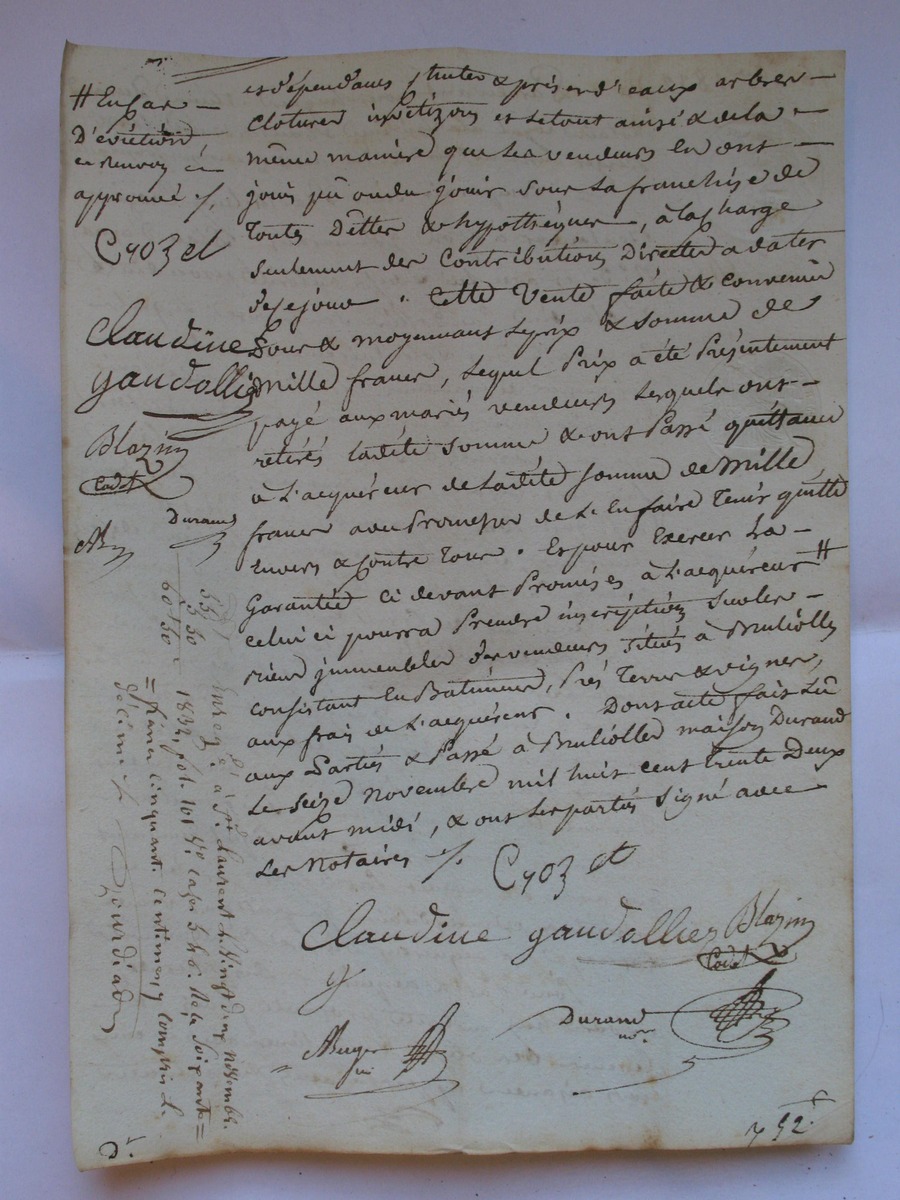 # En Cas
D'éviction,
ce renvoy
approuvé /.
Cyozet
Claudine
gaudollier
Blazin
Cadet
Durand
et dépendances, hutes & prises d'eaux arbres
clotures investizons et le tout ainsi & de la
même manière que les vendeurs en ont
joui pû ou du jouir sous la franchise de
toutes Dettes & hypothèques, à la charge
seulement des Contributions Directes a dater
de ce jour. Cette Vente faite & convenue
Pour & moyennant le prix & somme de
mille francs, lequel Prix a été Présentement
payé aux mariés vendeurs lesquels ont
retirés ladite somme & ont Passé quittance
à L'acquéreur de Ladite somme de Mille
francs avec Promesse de L'en faire Tenir quitte
Envers & Contre Tous. Et pour Exercer La
Garantie Ci devant Promises à L'acquéreur #
celui ci pourra Prendre inscription sur les
biens jmmeubles des vendeurs situés à Brulioles
consistant En Batiment, Prés Terres & vignes,
aux frais de L'acquéreur. Dont acte fait Lû
aux Parties & Passé à Brulioles maison Durand
Le seize Novembre mil huit cent trente Deux
avant midi, & ont Les parties Signé avec
Les Notaires /.
Cyozet
Claudine gaudollier Blazin
Cadet
Durand
nore
Enreg. à St. Laurent le Vingt deux novembre
1832, fol. 101 Vo. cases 5 & 6. Reçu Soixante =
= francs cinquante centimes, y compris L.
décime /.
55
5 50
60 50
752